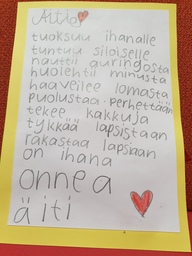 Äitini
tuoksuu ihanalle
tuntuu siloiselle
nauttii auringosta
huolehtii minusta
haaveilee lomasta
puolustaa perhettään
tekee kakkuja
tykkää lapsistaan
rakastaa lapsiaan
on ihana
onnea
äiti